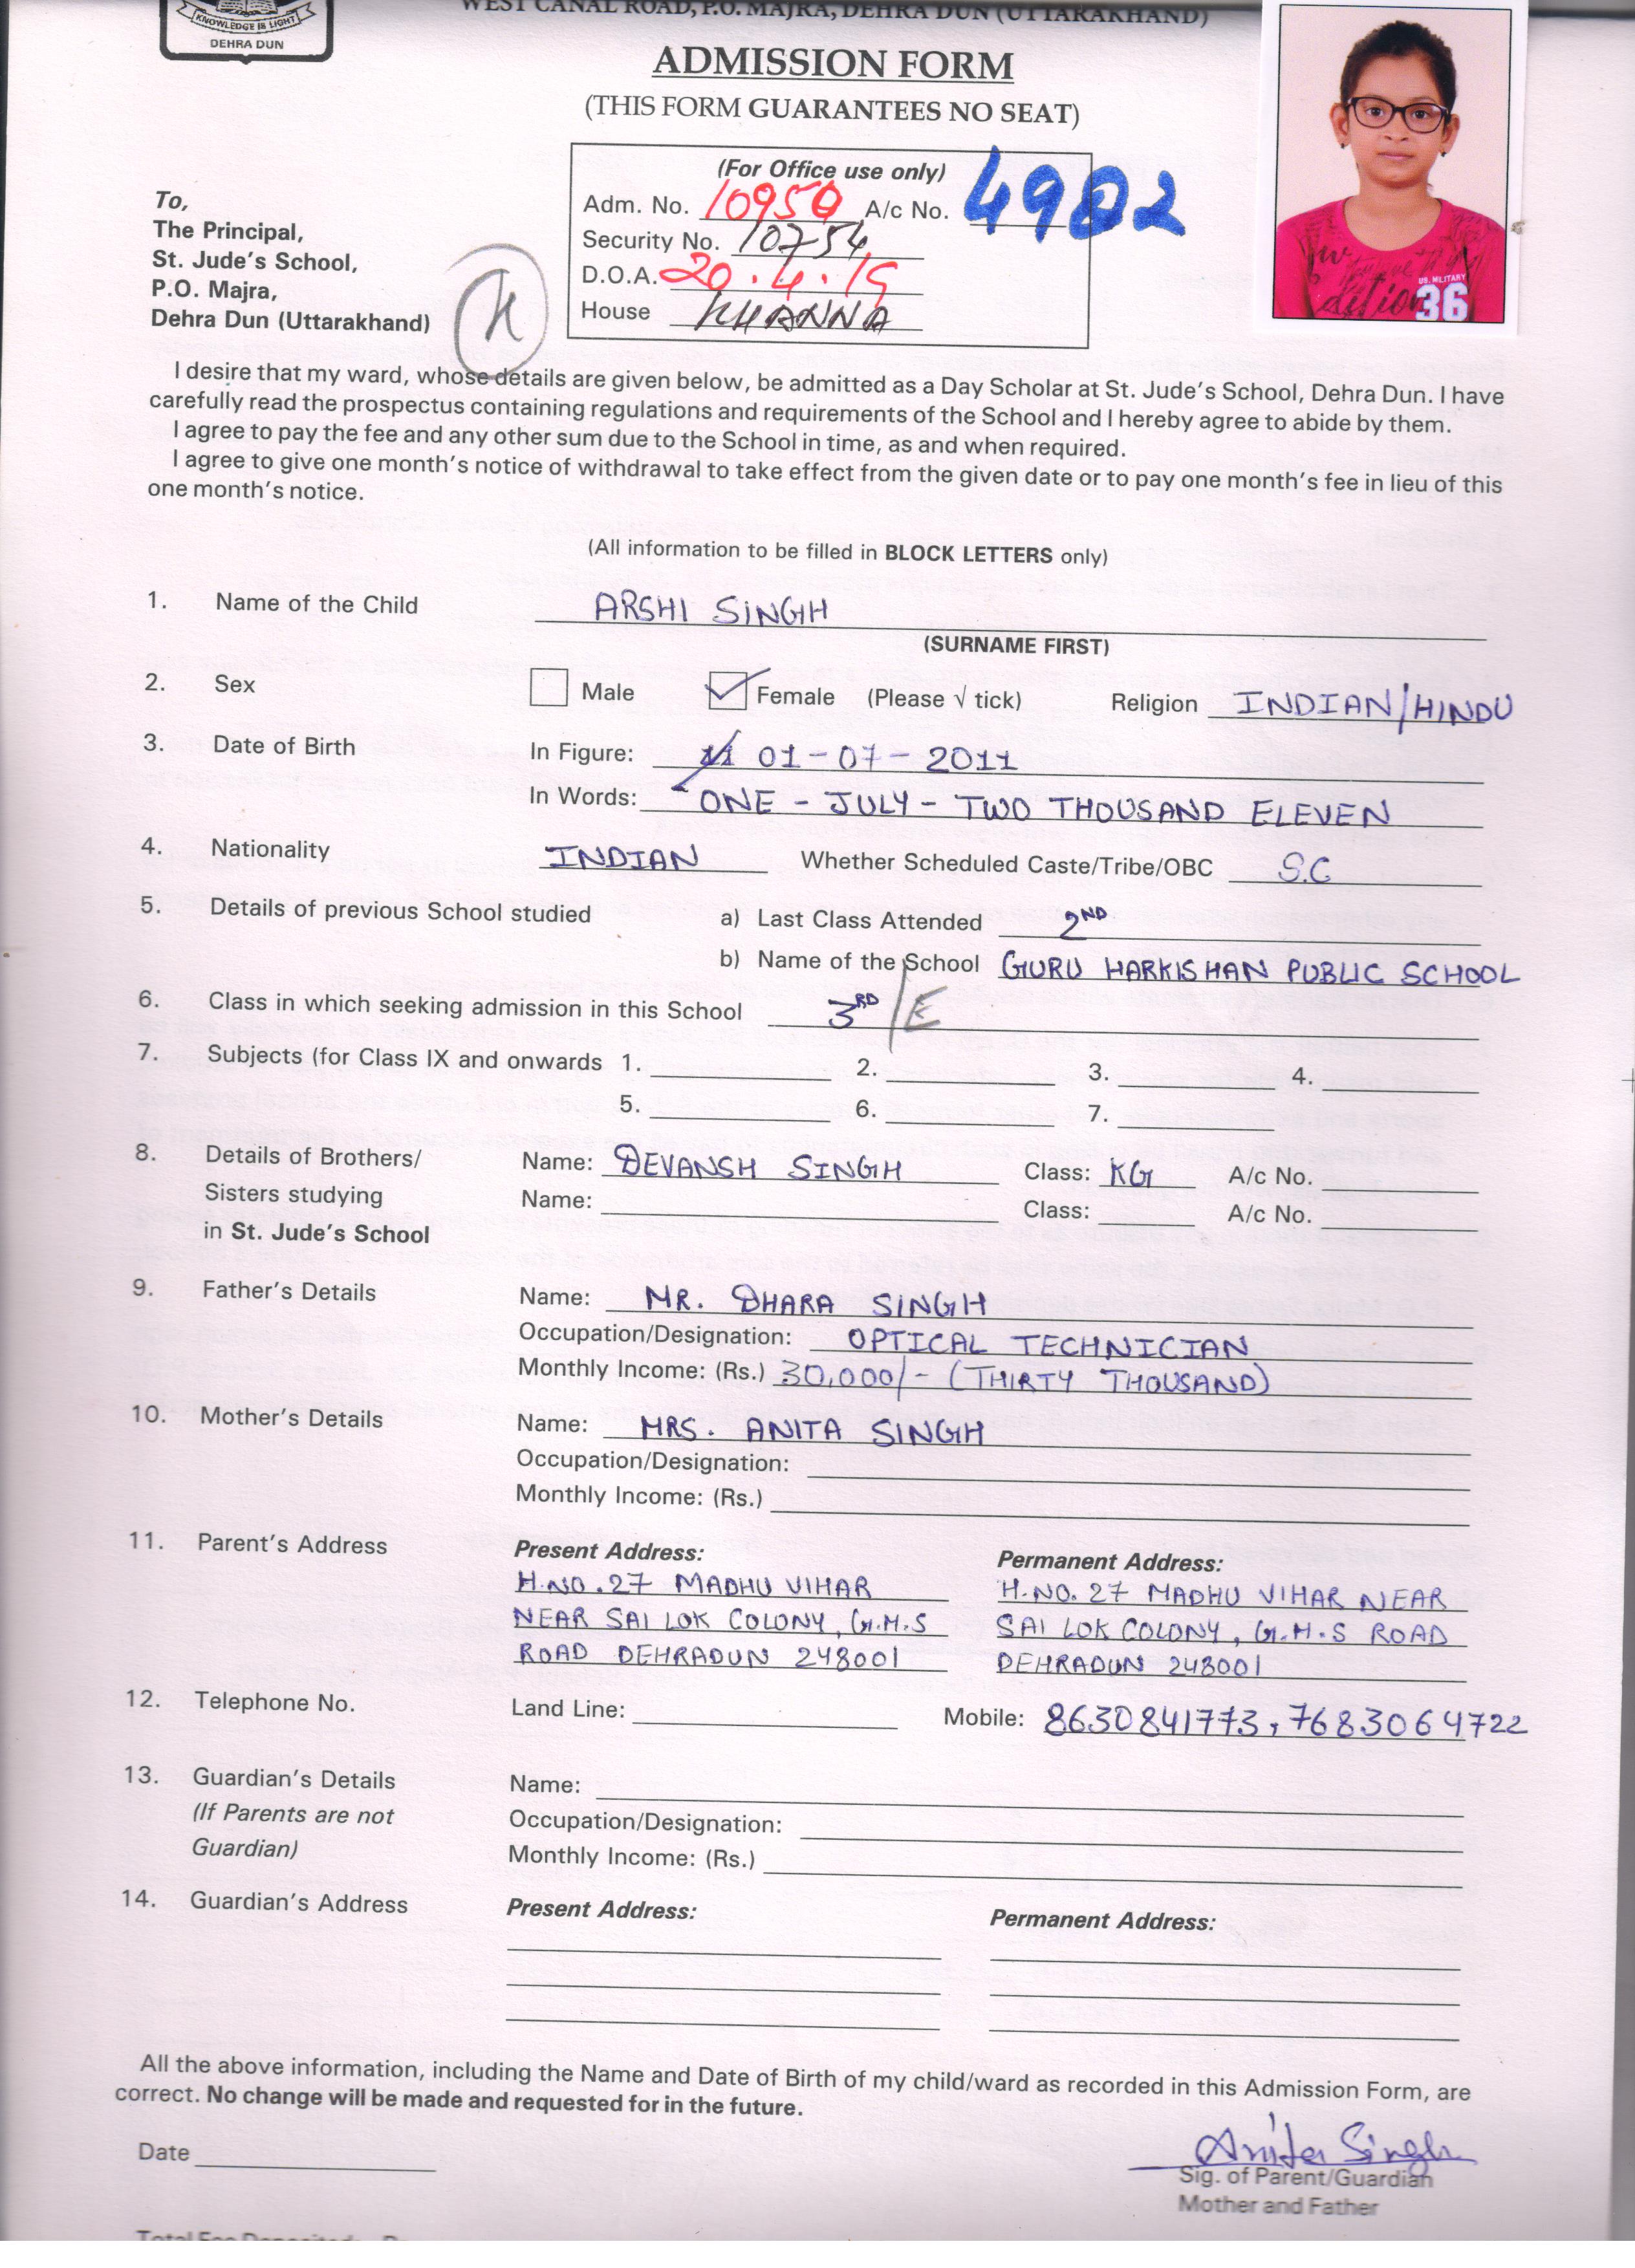 KNOWLEDGE IS LIGHT
DEHRA DUN
WEST CANAL ROAD, P.O. MAJRA, DEHRA DUN (UTTARAKHAND)
ADMISSION FORM
(THIS FORM GUARANTEES NO SEAT)
(For Office use only)
Adm. No. 10950 A/c No. 4902
Security No. 10754
D.O.A. 20.4.19
House KHANNA
To,
The Principal,
St. Jude's School,
P.O. Majra,
Dehra Dun (Uttarakhand)
US. MILITARY
36
I desire that my ward, whose details are given below, be admitted as a Day Scholar at St. Jude's School, Dehra Dun. I have
carefully read the prospectus containing regulations and requirements of the School and I hereby agree to abide by them.
I agree to pay the fee and any other sum due to the School in time, as and when required.
I agree to give one month's notice of withdrawal to take effect from the given date or to pay one month's fee in lieu of this
one month's notice.
(All information to be filled in BLOCK LETTERS only)
1. Name of the Child ARSHI SINGH
(SURNAME FIRST)
2. Sex Male Female (Please √ tick) Religion INDIAN/HINDU
3. Date of Birth In Figure: 01-07-2011
In Words: ONE - JULY - TWO THOUSAND ELEVEN
4. Nationality INDIAN Whether Scheduled Caste/Tribe/OBC S.C
5. Details of previous School studied a) Last Class Attended 2ND
b) Name of the School GURU HARKISHAN PUBLIC SCHOOL
6. Class in which seeking admission in this School 3RD/E
7. Subjects (for Class IX and onwards 1. 2. 3. 4.
5. 6. 7.
8. Details of Brothers/ Name: DEVANSH SINGH Class: KG A/c No.
Sisters studying Name: Class: A/c No.
in St. Jude's School
9. Father's Details Name: MR. DHARA SINGH
Occupation/Designation: OPTICAL TECHNICIAN
Monthly Income: (Rs.) 30,000/- (THIRTY THOUSAND)
10. Mother's Details Name: MRS. ANITA SINGH
Occupation/Designation:
Monthly Income: (Rs.)
11. Parent's Address Present Address: Permanent Address:
H.NO.27 MADHU VIHAR H.NO.27 MADHU VIHAR NEAR
NEAR SAI LOK COLONY, G.M.S SAI LOK COLONY, G.M.S ROAD
ROAD DEHRADUN 248001 DEHRADUN 248001
12. Telephone No. Land Line: Mobile: 8630841773, 7683064722
13. Guardian's Details Name:
(If Parents are not Occupation/Designation:
Guardian) Monthly Income: (Rs.)
14. Guardian's Address Present Address: Permanent Address:
All the above information, including the Name and Date of Birth of my child/ward as recorded in this Admission Form, are
correct. No change will be made and requested for in the future.
Date Anita Singh
Sig. of Parent/Guardian
Mother and Father